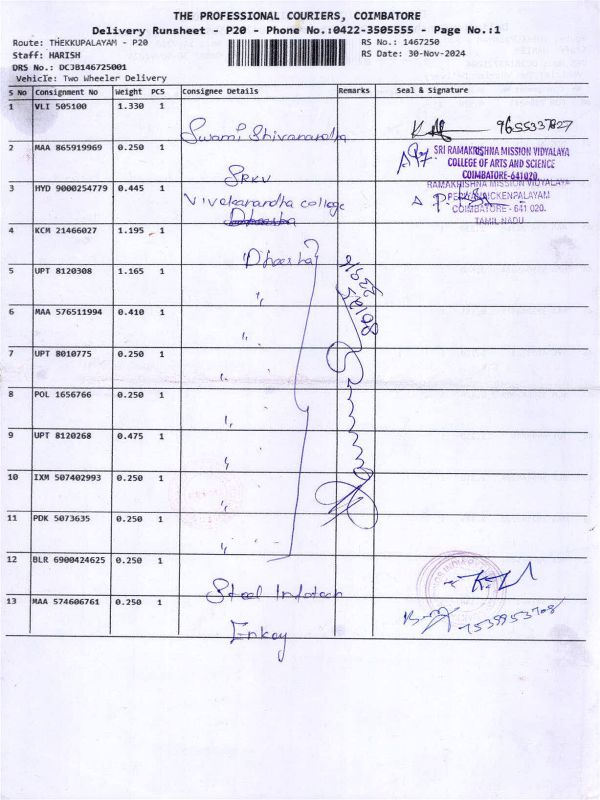 THE PROFESSIONAL COURIERS, COIMBATORE
Delivery Runsheet - P20 - Phone No.:0422-3505555 - Page No.:1
Route: THEKKUPALAYAM - P20 RS No.: 1467250
Staff: HARISH RS Date: 30-Nov-2024
DRS No.: DCJB146725001
Vehicle: Two Wheeler Delivery
S No Consignment No Weight PCS Consignee Details Remarks Seal & Signature
1 VLI 505100 1.330 1 Swami Shivanandha 9655337827
2 MAA 865919969 0.250 1 SRKV
SRI RAMAKRISHNA MISSION VIDYALAYA
COLLEGE OF ARTS AND SCIENCE
COIMBATORE-641020.
3 HYD 9000254779 0.445 1 Vivekanandha college
Dheesha
RAMAKRISHNA MISSION VIDYALAYA
PERIYANAICKENPALAYAM
COIMBATORE - 641 020.
TAMIL NADU
4 KCM 21466027 1.195 1 Dheesha
5 UPT 8120308 1.165 1 "
6 MAA 576511994 0.410 1 "
7 UPT 8010775 0.250 1 "
8 POL 1656766 0.250 1 "
9 UPT 8120268 0.475 1 "
10 IXM 507402993 0.250 1 "
11 PDK 5073635 0.250 1 "
12 BLR 6900424625 0.250 1 Steel Infotech
13 MAA 574606761 0.250 1 Enkay